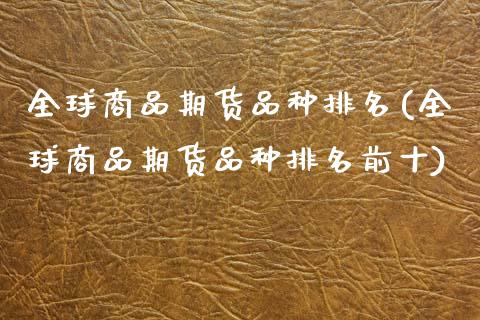 全球商品期货品种排名(全
球商品期货品种排名前十)